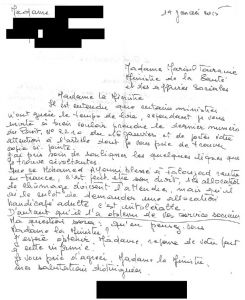 Madame
19 janvier 2015
Madame Marisol Touraine
Ministre de la Santé
et des affaires sociales
Madame la Ministre
J'ai entendu que certains ministres
n'ont guère le temps de lire, cependant je vous
invite à bien vouloir prendre le dernier numéro
du Point, N° 2210 du 15 janvier et de porter votre
attention à l'article dont je vous prie de trouver
copie ci-jointe.
J'ai pris soin de souligner les quelques lignes que
je trouve
que se Mohamed
en France, c'est peut être son droit, les allocations
de chômage doivent l'attendre, mais qu'il
ait le culot de demander une allocation
handicapé adulte c'est intolérable
D'autant qu'il l'a obtenu de vos services sociaux
La question sera : qu'en pensez-vous
Madame la Ministre ?
J'espère obtenir, Madame, réponse de votre part
à cette
Je vous prie d'agréer, Madame la Ministre,
mes salutations distinguées